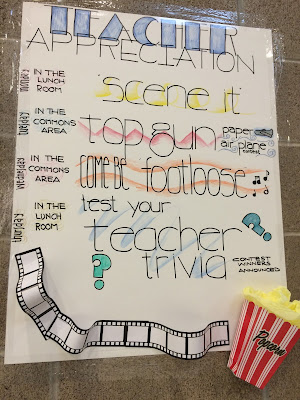 TEACHER
APPRECIATION
Monday
IN THE
LUNCH
ROOM
scene it
Tuesday
IN THE
COMMONS
AREA
top gun
paper
air plane
contest
Wednesday
IN THE
COMMONS
AREA
COME BE footloose
Thursday
IN THE
LUNCH
ROOM
test your
teacher
trivia
?
?
CONTEST
WINNERS
ANNOUNCED
Popcorn